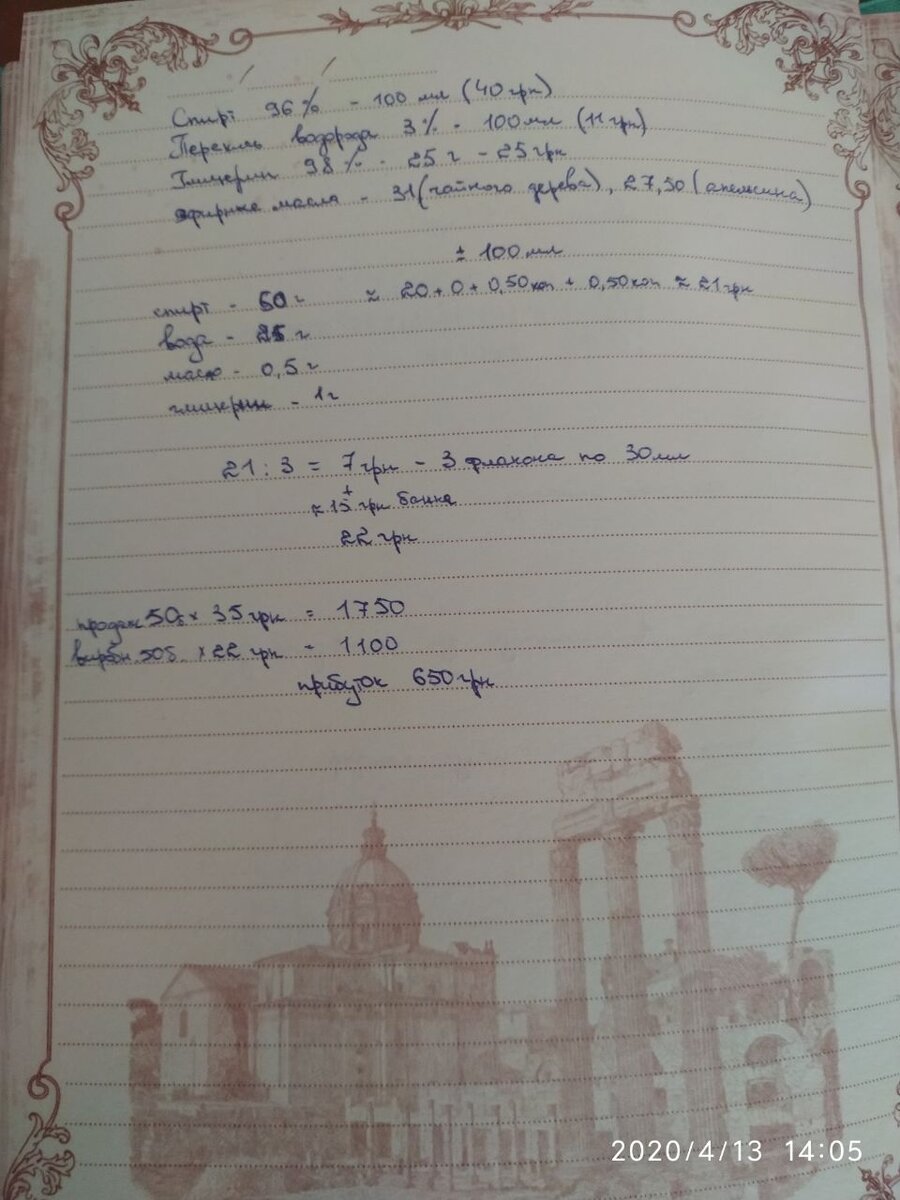 Спирт 96% - 100 мл (40 грн)
Перекись водорода 3% - 100мл (11 грн)
Глицерин 98% - 25 г - 25 грн
эфирные масла - 31 (чайного дерева), 27,50 (апельсина)
± 100 мл
спирт - 60 г ≈ 20 + 0 + 0,50 коп + 0,50 коп ≈ 21 грн
вода - г
масло - 0,5 г
глицерин - 1г
21 : 3 = 7 грн - 3 флакона по 30мл
+
≈ 15 грн банка
22 грн
продаж 50 × 35 грн = 1750
× 22 грн = 1100
прибуток 650 грн
2020/4/13 14:05